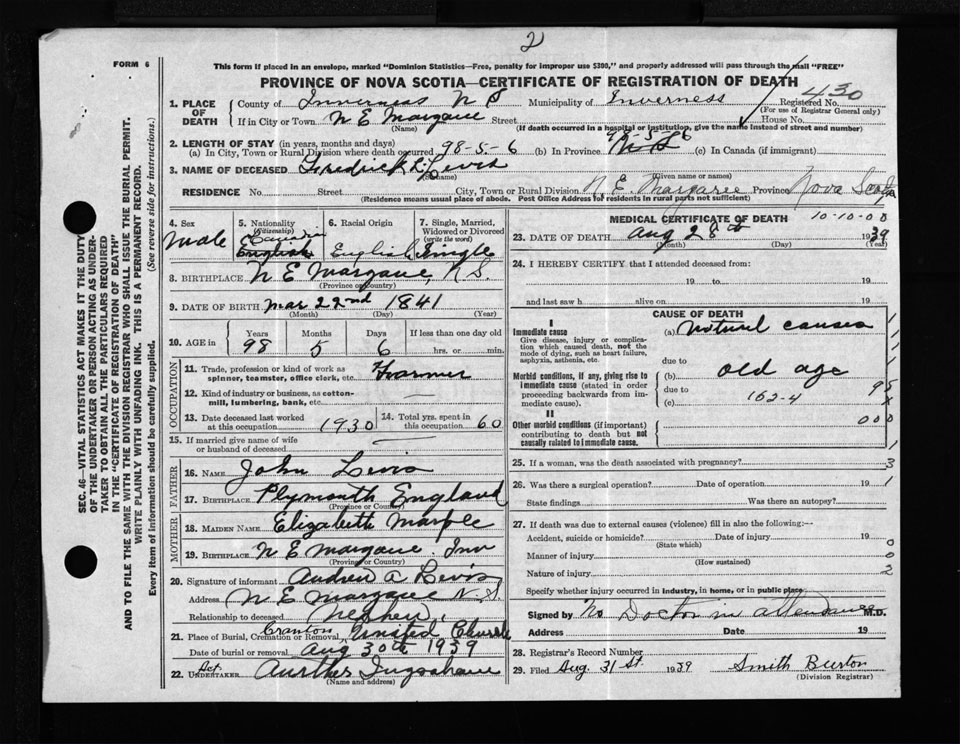 2
FORM 6
This form if placed in an envelope, marked "Dominion Statistics—Free, penalty for improper use $300," and properly addressed will pass through the mail "FREE"
PROVINCE OF NOVA SCOTIA—CERTIFICATE OF REGISTRATION OF DEATH
430
1. PLACE OF DEATH
County of Inverness N S Municipality of Inverness Registered No.
(For use of Registrar General only)
If in City or Town N E Margaree Street House No.
(Name) (If death occurred in a hospital or institution, give the name instead of street and number)
2. LENGTH OF STAY (in years, months and days)
(a) In City, Town or Rural Division where death occurred 98-5-6 (b) In Province 98-5-6 N S (c) In Canada (if immigrant)
3. NAME OF DECEASED Fredrick L. Levis
(Surname) (Given name or names)
RESIDENCE No. Street City, Town or Rural Division N. E. Margaree Province Nova Scotia
(Residence means usual place of abode. Post Office Address for residents in rural parts not sufficient)
4. Sex
Male
5. Nationality
(Citizenship)
Canadian
English
6. Racial Origin
English
7. Single, Married, Widowed or Divorced
(write the word)
Single
8. BIRTHPLACE N E Margaree, N S.
(Province or Country)
9. DATE OF BIRTH Mar 22nd 1841
(Month) (Day) (Year)
10. AGE in
Years Months Days If less than one day old
98 5 6 hrs. or min.
OCCUPATION
11. Trade, profession or kind of work as spinner, teamster, office clerk, etc. Farmer
12. Kind of industry or business, as cotton-mill, lumbering, bank, etc.
13. Date deceased last worked at this occupation 1930
14. Total yrs. spent in this occupation 60
15. If married give name of wife or husband of deceased
FATHER
16. NAME John Levis
17. BIRTHPLACE Plymouth England
(Province or Country)
MOTHER
18. MAIDEN NAME Elizabeth Marple
19. BIRTHPLACE N E Margaree. Inv
(Province or Country)
20. Signature of informant Andrew A Levis
Address N E Margaree N.S.
Relationship to deceased Nephew
21. Place of Burial, Cremation or Removal Cranton United Church
Date of burial or removal Aug 30th 1939
22. Act UNDERTAKER Aurther
(Name and address)
MEDICAL CERTIFICATE OF DEATH 10-10-00
23. DATE OF DEATH Aug 28th 1939
(Month) (Day) (Year)
24. I HEREBY CERTIFY that I attended deceased from:
19 to 19
and last saw h alive on 19
CAUSE OF DEATH
I
Immediate cause (a) Natural causes
Give disease, injury or complication which caused death, not the mode of dying, such as heart failure, asphyxia, asthenia, etc.
due to
Morbid conditions, if any, giving rise to immediate cause (stated in order proceeding backwards from immediate cause).
(b) old age
due to
(c) 162-4
II
Other morbid conditions (if important) contributing to death but not causally related to immediate cause.
25. If a woman, was the death associated with pregnancy? 3
26. Was there a surgical operation? Date of operation 19 1
State findings Was there an autopsy?
27. If death was due to external causes (violence) fill in also the following:—
Accident, suicide or homicide? Date of injury 19 0
(State which)
Manner of injury 0
(How sustained)
Nature of injury 2
Specify whether injury occurred in industry, in home, or in public place
Signed by No Doctor in attendance M.D.
Address Date 19
28. Registrar's Record Number
29. Filed Aug 31st. 1939 Smith Burton
(Division Registrar)
SEC. 46—VITAL STATISTICS ACT MAKES IT THE DUTY OF THE UNDERTAKER OR PERSON ACTING AS UNDERTAKER TO OBTAIN ALL THE PARTICULARS REQUIRED IN THE "CERTIFICATE OF REGISTRATION OF DEATH" AND TO FILE THE SAME WITH THE DIVISION REGISTRAR WHO SHALL ISSUE THE BURIAL PERMIT.
WRITE PLAINLY WITH UNFADING INK. THIS IS A PERMANENT RECORD.
Every item of information should be carefully supplied. (See reverse side for instructions.)